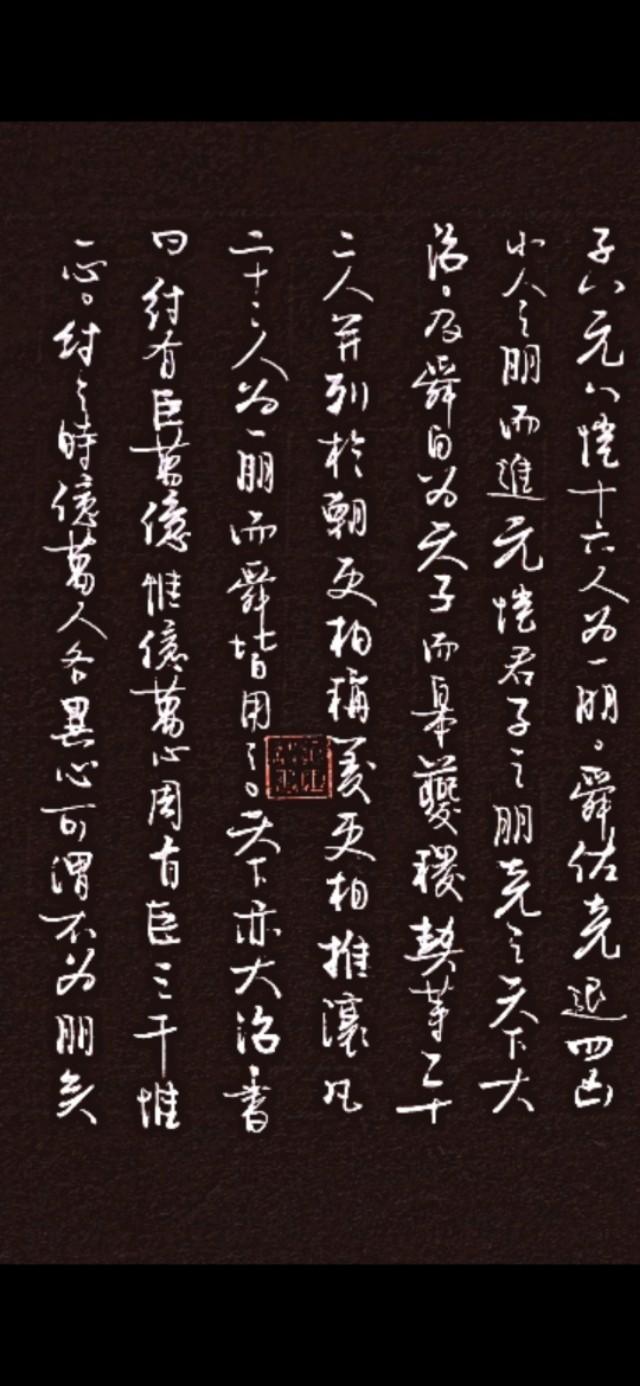 子八元八愷十六人為一朋。舜佐堯退四凶
小人之朋而進元愷君子之朋堯之天下大
治。及舜自為天子而皋夔稷契等二十
二人并列於朝更相稱美更相推讓凡
二十二人為一朋而舜皆用之。天下亦大治。書
曰紂有臣萬億惟億萬心周有臣三千惟
一心。紂之時億萬人各異心可謂不為朋矣